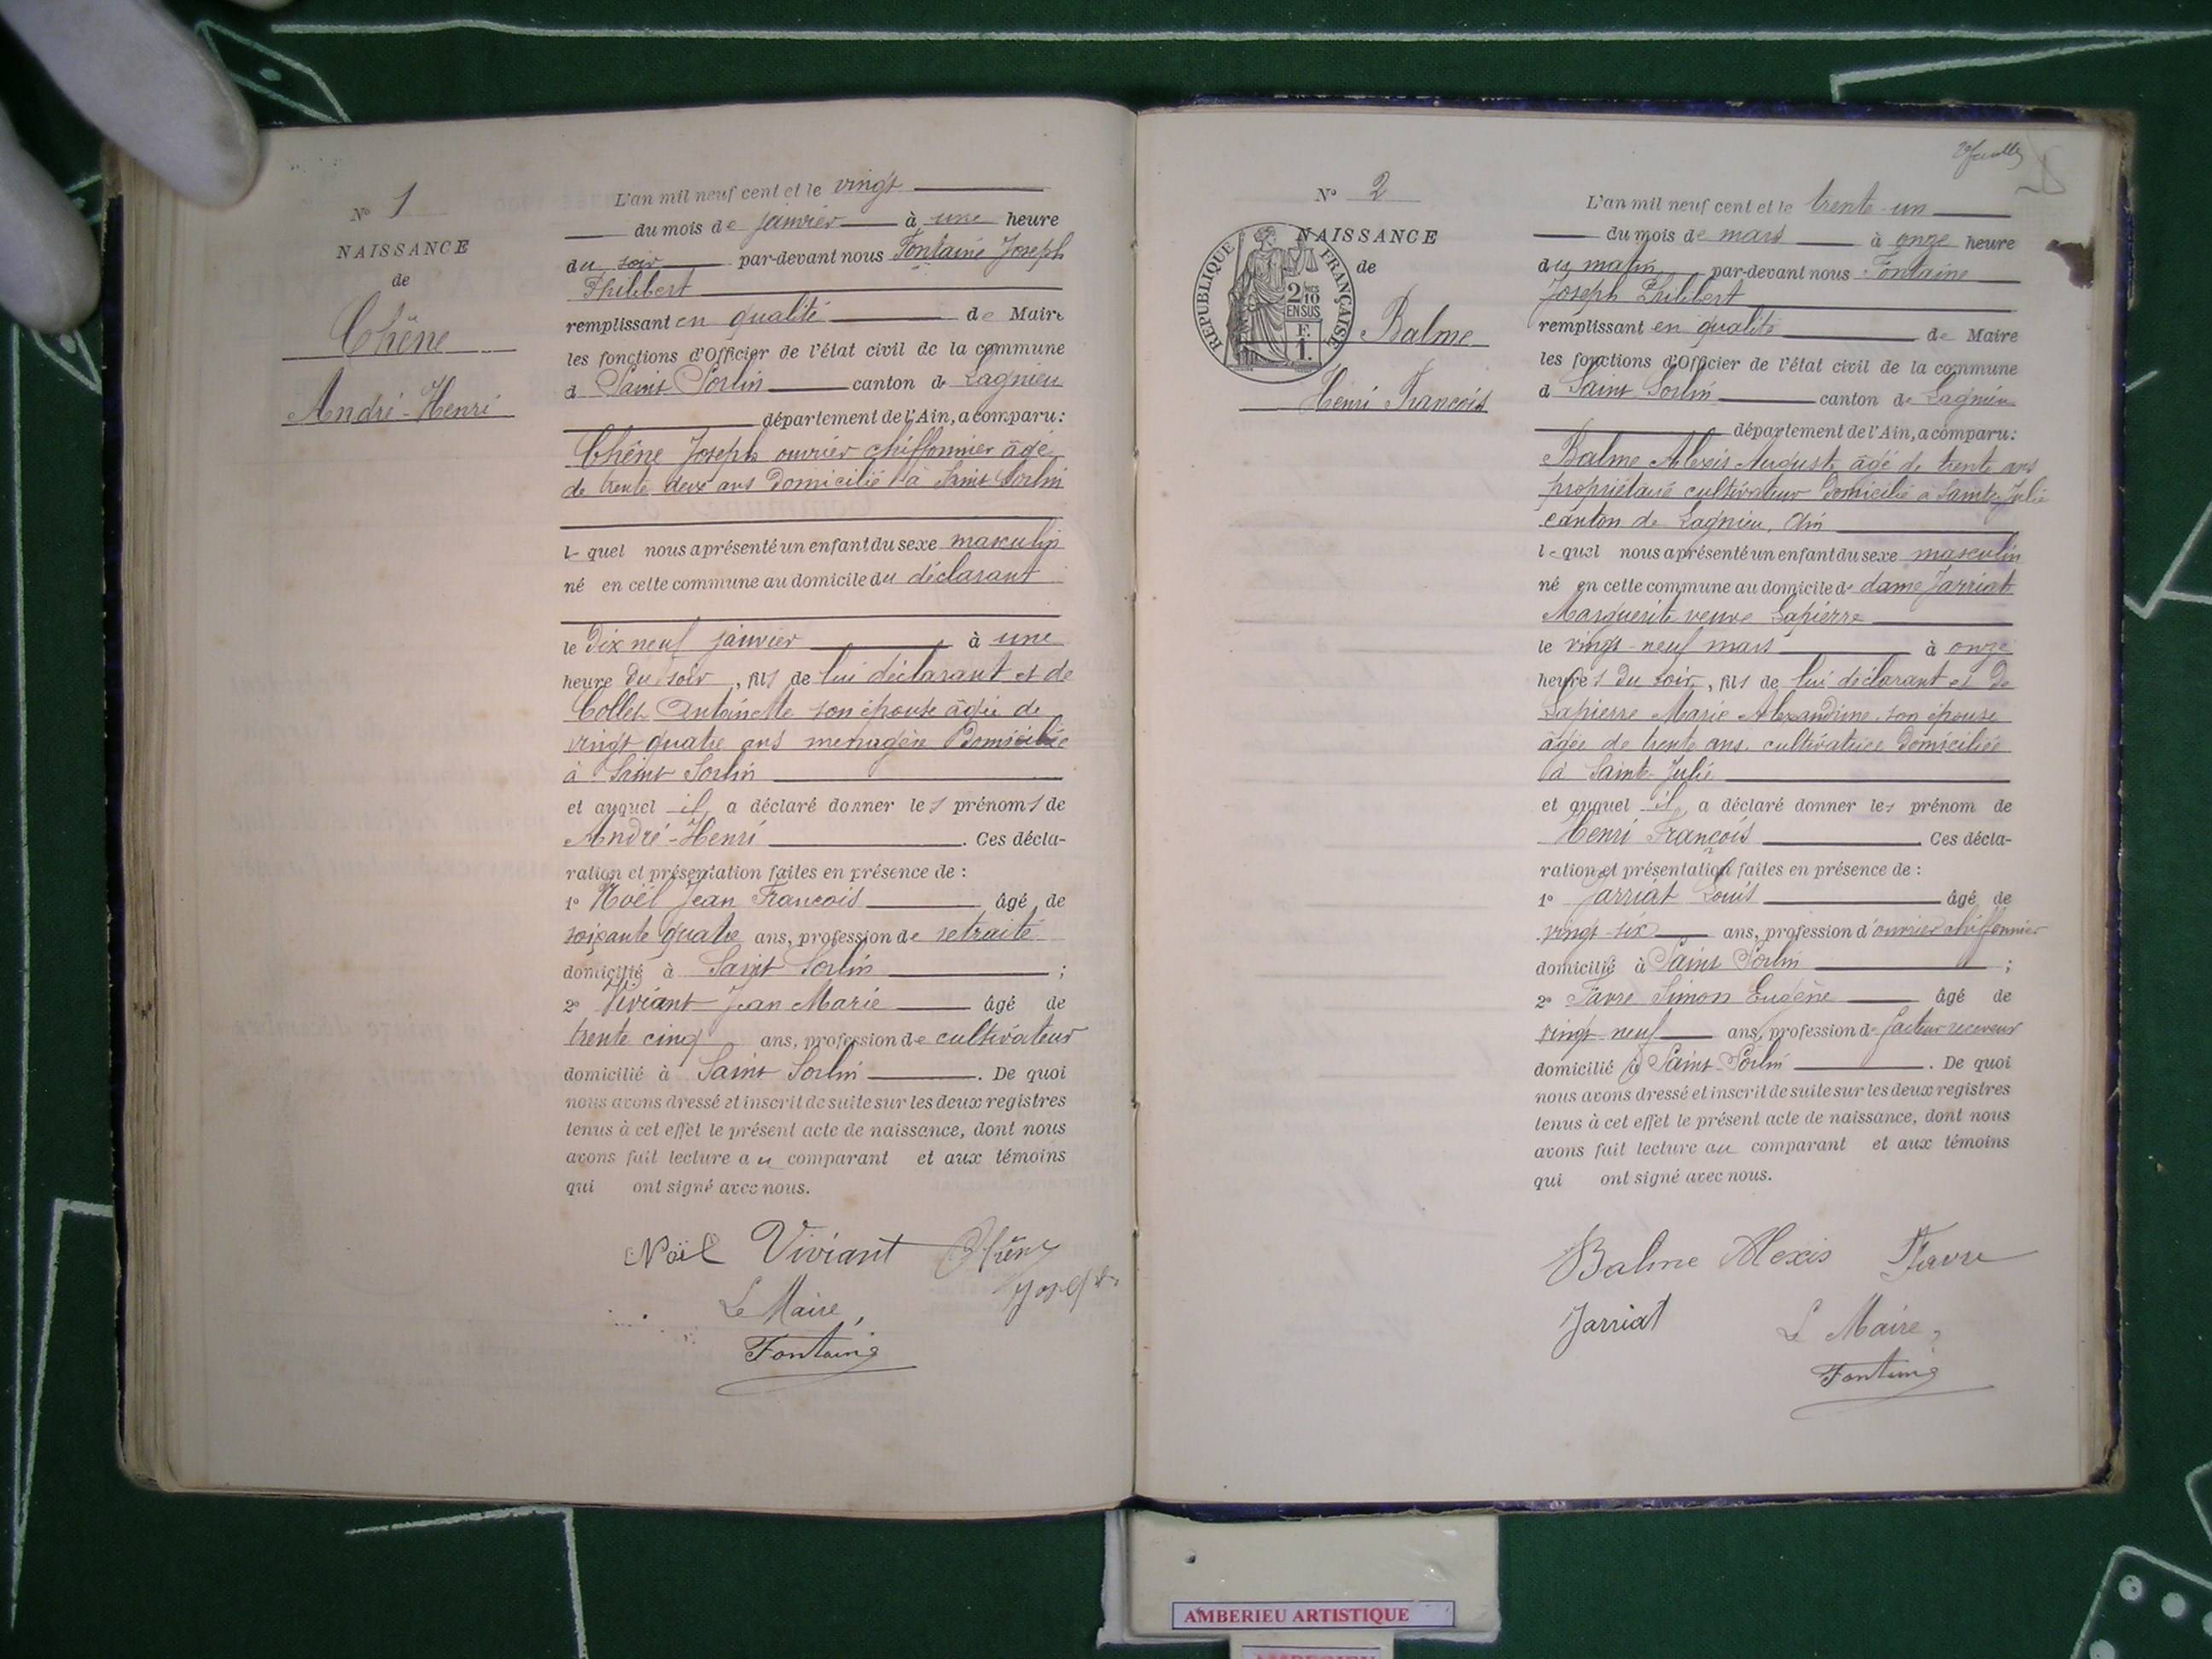 N° 1
NAISSANCE
de
Chêne
André-Henri
L'an mil neuf cent et le vingt
du mois de janvier à une heure
du soir par-devant nous Fontaine Joseph
Philibert
remplissant en qualité de Maire
les fonctions d'Officier de l'état civil de la commune
d Saint Sorlin canton de Lagnieu
département de l'Ain, a comparu:
Chêne Joseph ouvrier chiffonnier âgé
de trente deux ans domicilié à Saint Sorlin
lequel nous a présenté un enfant du sexe masculin
né en cette commune au domicile du déclarant
le dix neuf janvier à une
heure du soir, fils de lui déclarant et de
Collet Antoinette son épouse âgée de
vingt quatre ans menagère domiciliée
à Saint Sorlin
et auquel il a déclaré donner les prénoms de
André-Henri. Ces décla-
ration et présentation faites en présence de :
1° Noël Jean François âgé de
soixante quatre ans, profession de retraité
domicilié à Saint Sorlin ;
2° Viviant Jean Marie âgé de
trente cinq ans, profession de cultivateur
domicilié à Saint Sorlin. De quoi
nous avons dressé et inscrit de suite sur les deux registres
tenus à cet effet le présent acte de naissance, dont nous
avons fait lecture au comparant et aux témoins
qui ont signé avec nous.
Noël Viviant Chêne
Joseph
Le Maire,
Fontaine
2e feuillet
N° 2
NAISSANCE
de
RÉPUBLIQUE FRANÇAISE
2/10 EN SUS
F. 1.
Balme
Henri François
L'an mil neuf cent et le trente-un
du mois de mars à onze heure
du matin par-devant nous Fontaine
Joseph Philibert
remplissant en qualité de Maire
les fonctions d'Officier de l'état civil de la commune
d Saint Sorlin canton de Lagnieu
département de l'Ain, a comparu:
Balme Alexis Auguste âgé de trente ans
propriétaire cultivateur domicilié à Sainte Julie
canton de Lagnieu, Ain
lequel nous a présenté un enfant du sexe masculin
né en cette commune au domicile de dame Jarriat
Marguerite veuve Lapierre
le vingt-neuf mars à onze
heures du soir, fils de lui déclarant et de
Lapierre Marie Alexandrine son épouse
âgée de trente ans cultivatrice domiciliée
à Sainte-Julie
et auquel il a déclaré donner les prénom de
Henri François Ces décla-
ration et présentation faites en présence de :
1° Jarriat Louis âgé de
vingt-six ans, profession d'ouvrier chiffonnier
domicilié à Saint Sorlin ;
2° Favre Simon Eugène âgé de
vingt-neuf ans, profession de facteur receveur
domicilié à Saint-Sorlin. De quoi
nous avons dressé et inscrit de suite sur les deux registres
tenus à cet effet le présent acte de naissance, dont nous
avons fait lecture au comparant et aux témoins
qui ont signé avec nous.
Balme Alexis Favre
Jarriat Le Maire,
Fontaine
AMBERIEU ARTISTIQUE